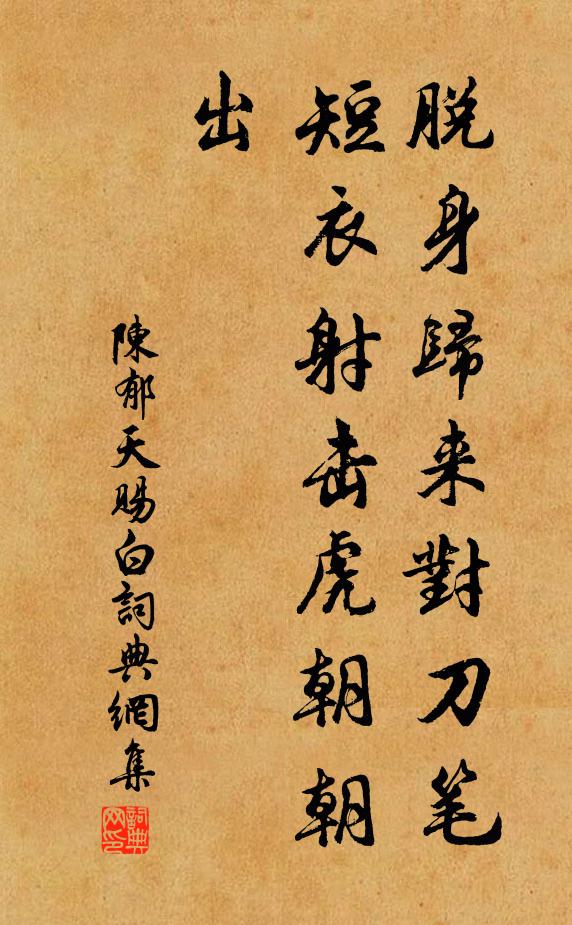 脱身歸来對刀笔
短衣射击虎朝朝
出
陳郁天賜白詞典網集
詞典网印